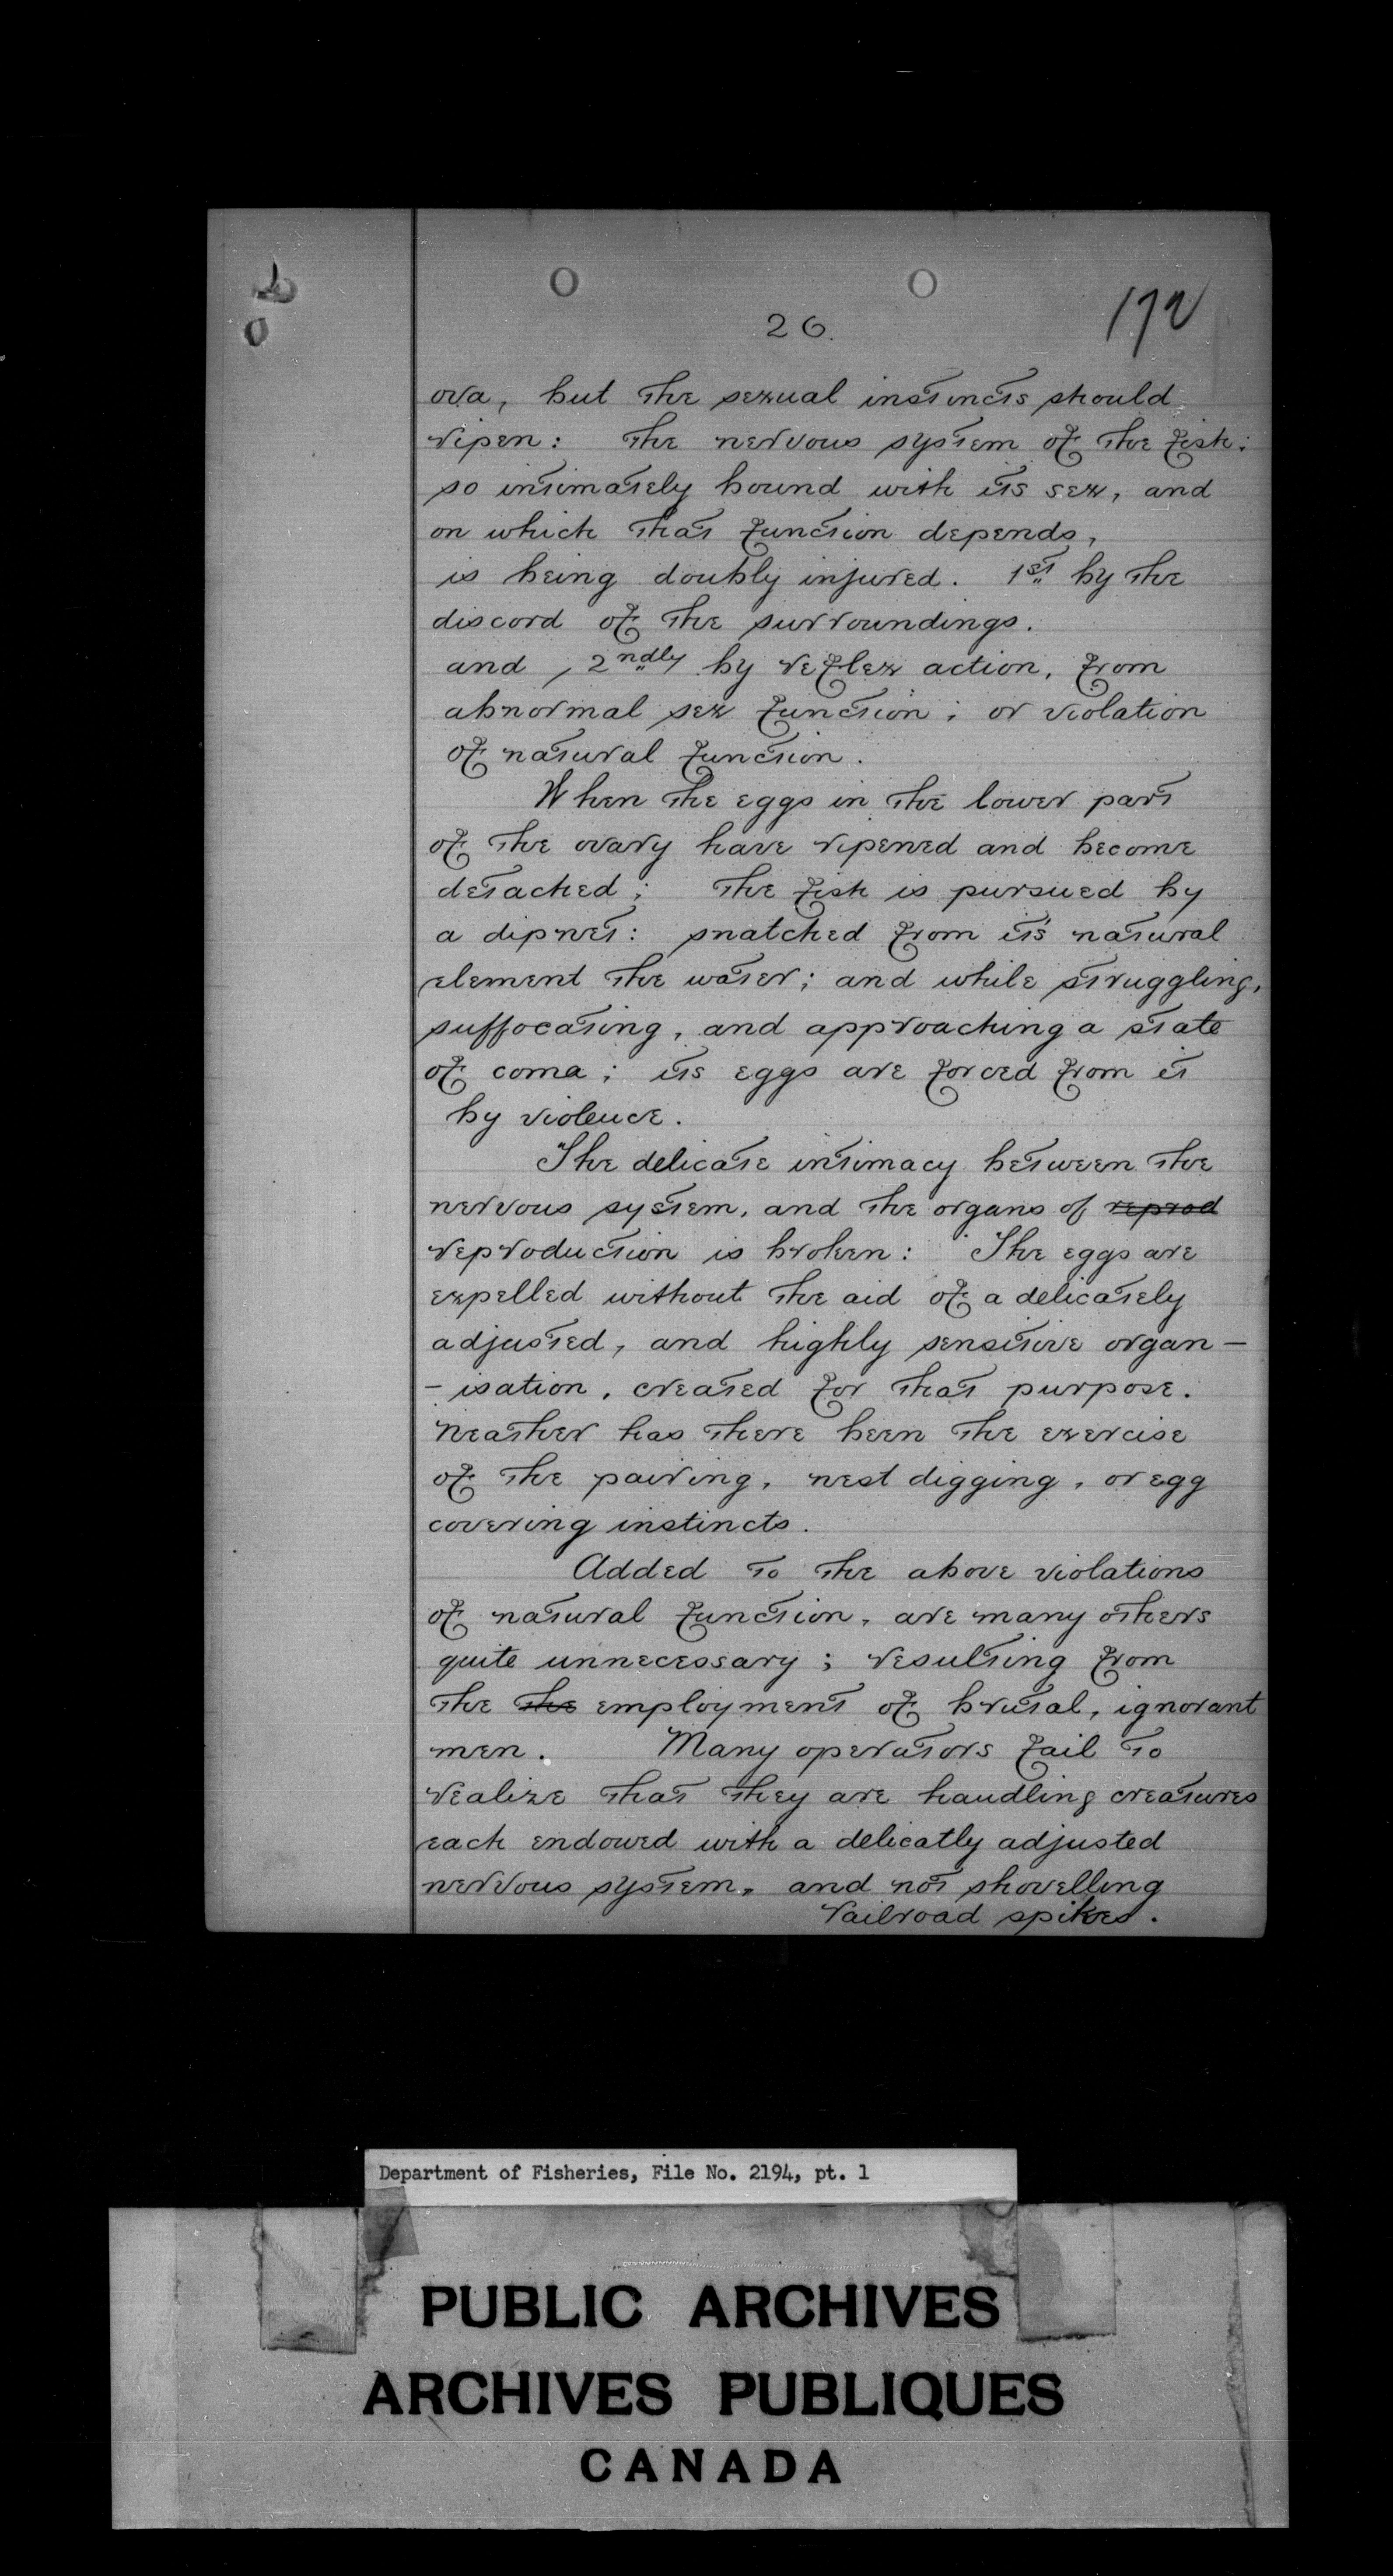 26.
172
ova, but the sexual instincts should
ripen: the nervous system of the fish;
so intimately bound with its sex, and
on which that function depends,
is being doubly injured. 1st by the
discord of the surroundings.
and, 2ndly by reflex action, from
abnormal sex function; or violation
of natural function.
When the eggs in the lower part
of the ovary have ripened and become
detached; the fish is pursued by
a dipnet: snatched from it's natural
element the water; and while struggling,
suffocating, and approaching a state
of coma; its eggs are forced from it
by violence.
The delicate intimacy between the
nervous system, and the organs of reprod
reproduction is broken: The eggs are
expelled without the aid of a delicately
adjusted, and highly sensitive organ-
-isation, created for that purpose.
Neather has there been the exercise
of the pairing, nest digging, or egg
covering instincts.
Added to the above violations
of natural function, are many others
quite unnecessary; resulting from
the the employment of brutal, ignorant
men. Many operators fail to
realize that they are handling creatures
each endowed with a delicatly adjusted
nervous system, and not shovelling
railroad spikes.
Department of Fisheries, File No. 2194, pt. 1
PUBLIC ARCHIVES
ARCHIVES PUBLIQUES
CANADA